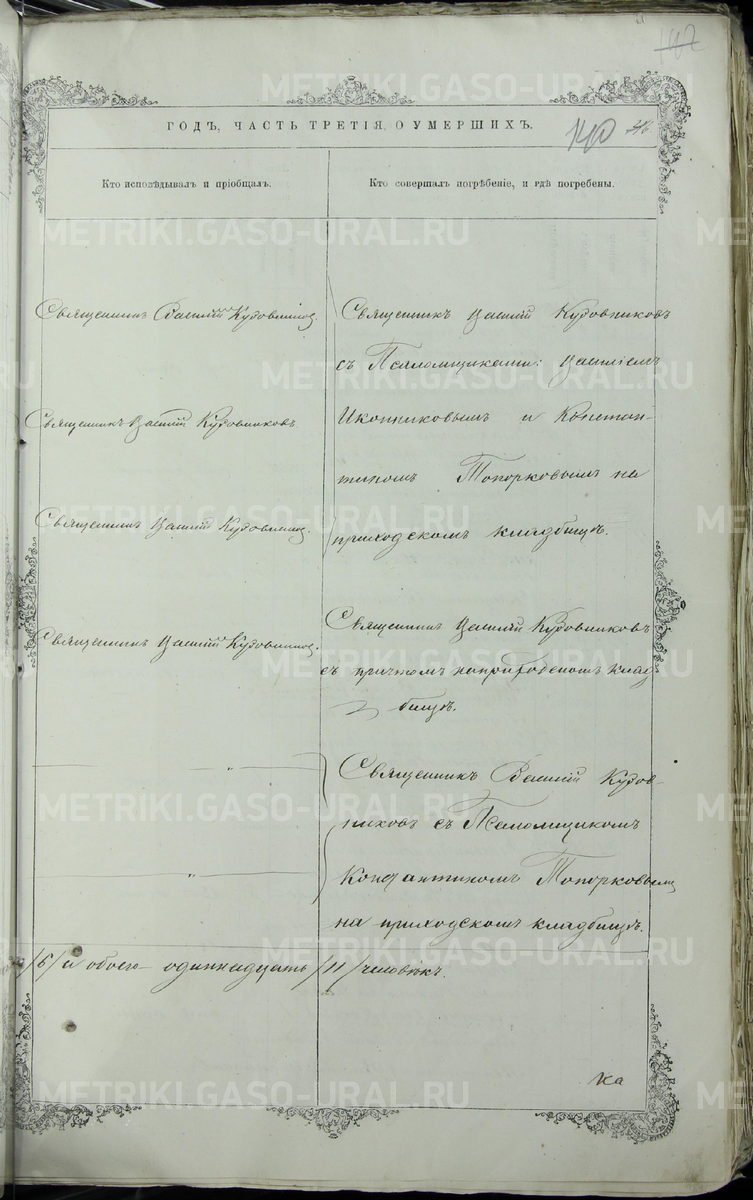 142
ГОДЪ, ЧАСТЬ ТРЕТІЯ, О УМЕРШИХЪ.
140
Кто исповѣдывалъ и пріобщалъ.
Кто совершалъ погребеніе, и гдѣ погребены.
Священникъ Василій Кудовниковъ
Священникъ Василій Кудовниковъ
Священникъ Василій Кудовниковъ.
Священникъ Василій Кудовниковъ.
Священникъ Василій Кудовниковъ
съ Псаломщиками: Василіемъ
Иконниковымъ и Констан-
тиномъ Топорковымъ на
приходскомъ кладбищѣ.
Священникъ Василій Кудовниковъ
съ причтомъ на приходскомъ клад-
бищѣ.
Священникъ Василій Кудов-
никовъ съ Псаломщикомъ
Константиномъ Топорковымъ
на приходскомъ кладбищѣ.
/6/ а обоего одиннадцать /11/ человѣкъ.
Ка
METRIKI.GASO-URAL.RU